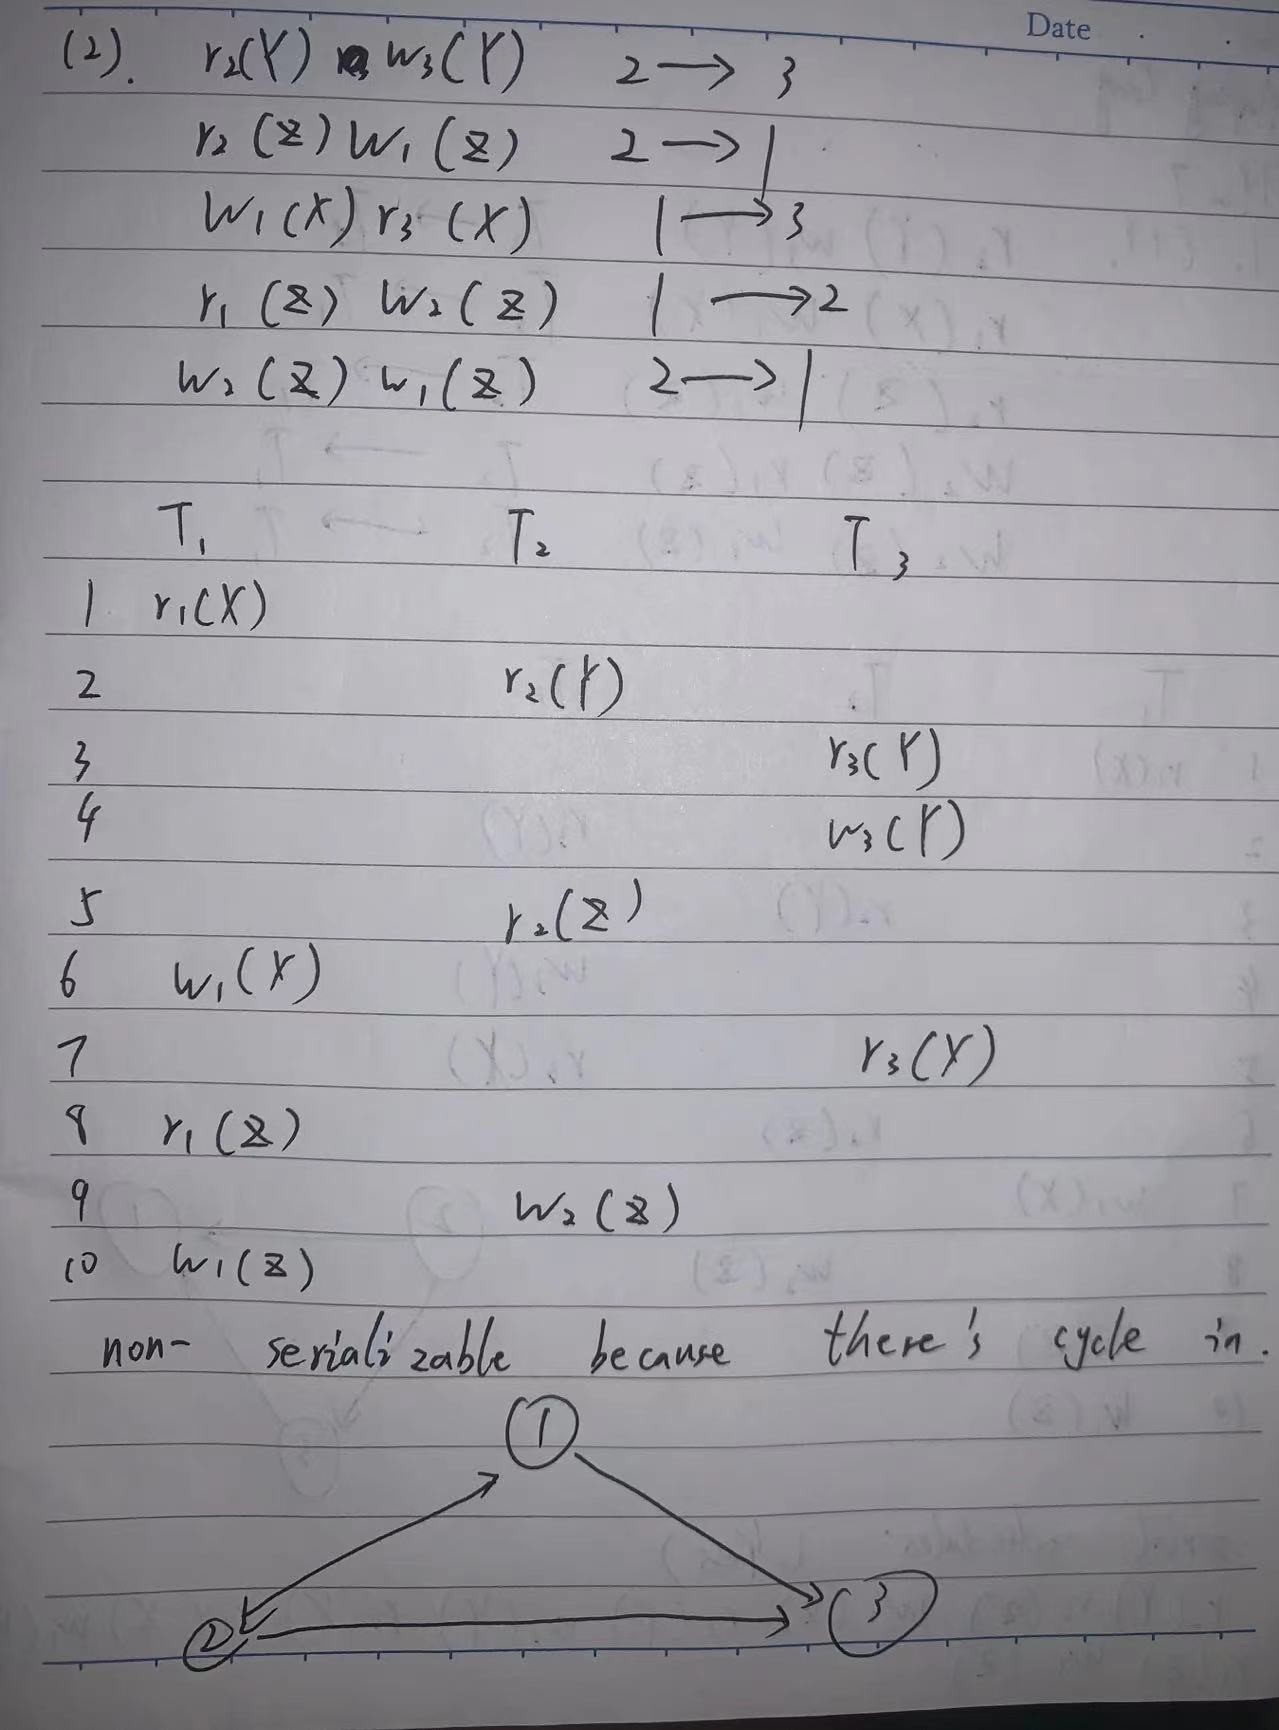 Date . .
(2). r₂(Y) w₃(Y) 2 → 3
r₂(Z) W₁(Z) 2 → 1
W₁(X) r₃(X) 1 → 3
r₁(Z) W₂(Z) 1 → 2
W₂(Z) w₁(Z) 2 → 1
T₁ T₂ T₃
1 r₁(X)
2 r₂(Y)
3 r₃(Y)
4 w₃(Y)
5 r₂(Z)
6 W₁(X)
7 r₃(X)
8 r₁(Z)
9 W₂(Z)
10 W₁(Z)
non-serializable because there's cycle in.
1
2 3